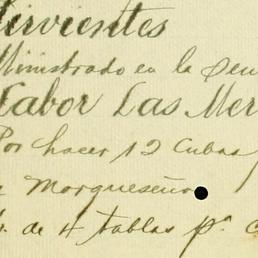 Sirvientes
Ministrado en la
Labor Las Mer
Por hacer 12 Cubas
Marqueseño
de 4 tablas pa. C